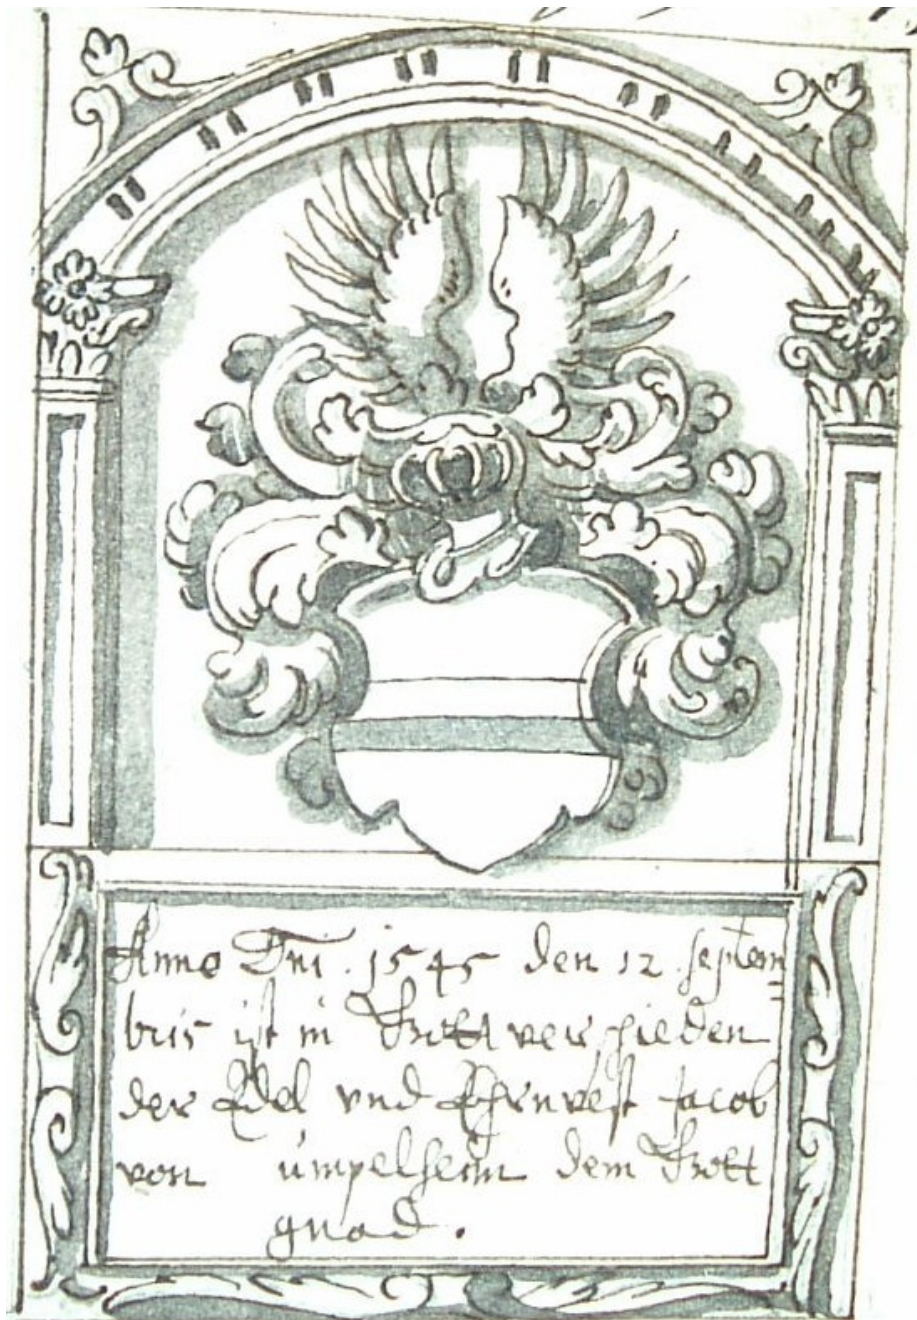 Anno Dni . 1545 den 12 . septem=
bris ist in Gott verschieden
der Edel vnd Ehrnvest Jacob
von ümpelheim dem Gott
gnad .